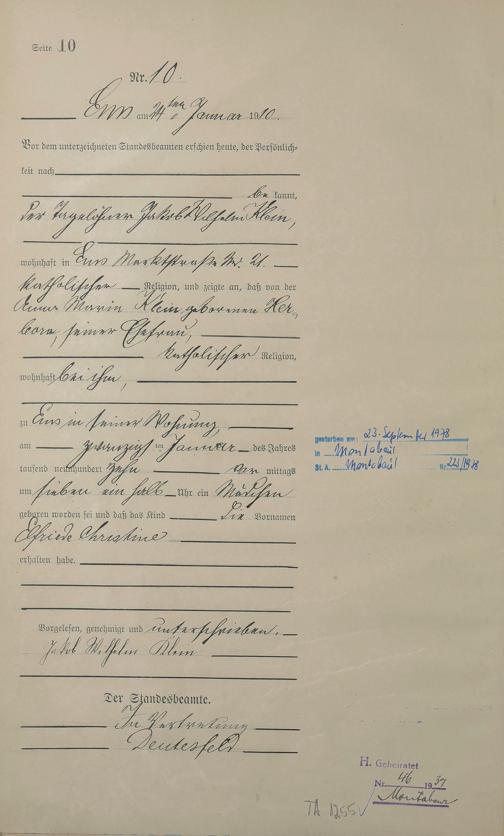 Seite 10
Nr. 10.
Ems am 24ten Januar 1910.
Vor dem unterzeichneten Standesbeamten erschien heute, der Persönlich-
keit nach
be kannt,
der Tagelöhner Jakob Wilhelm Klein,
wohnhaft in Ems Marktstraße Nr. 21.
katholischer Religion, und zeigte an, daß von der
Anna Maria Klein geborenen Her-
born, seiner Ehefrau,
katholischer Religion,
wohnhaft bei ihm,
zu Ems in seiner Wohnung,
am zwanzigsten Januar des Jahres
tausend neunhundert zehn vor mittags
um sieben ein halb Uhr ein Mädchen
geboren worden sei und daß das Kind die Vornamen
Elfriede Christine
erhalten habe.
Vorgelesen, genehmigt und unterschrieben.
Jakob Wilhelm Klein
Der Standesbeamte.
In Vertretung
gestorben am: 23. September 1978
in Montabaur
St. A. Montabaur Nr. 223/1978
H. Geheiratet
Nr. 46 1937
Montabaur
TA 1255